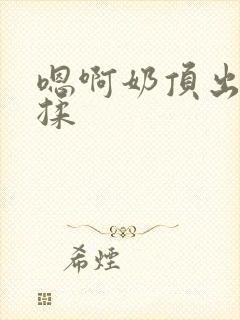 嗯啊奶頂出
揉
希煙